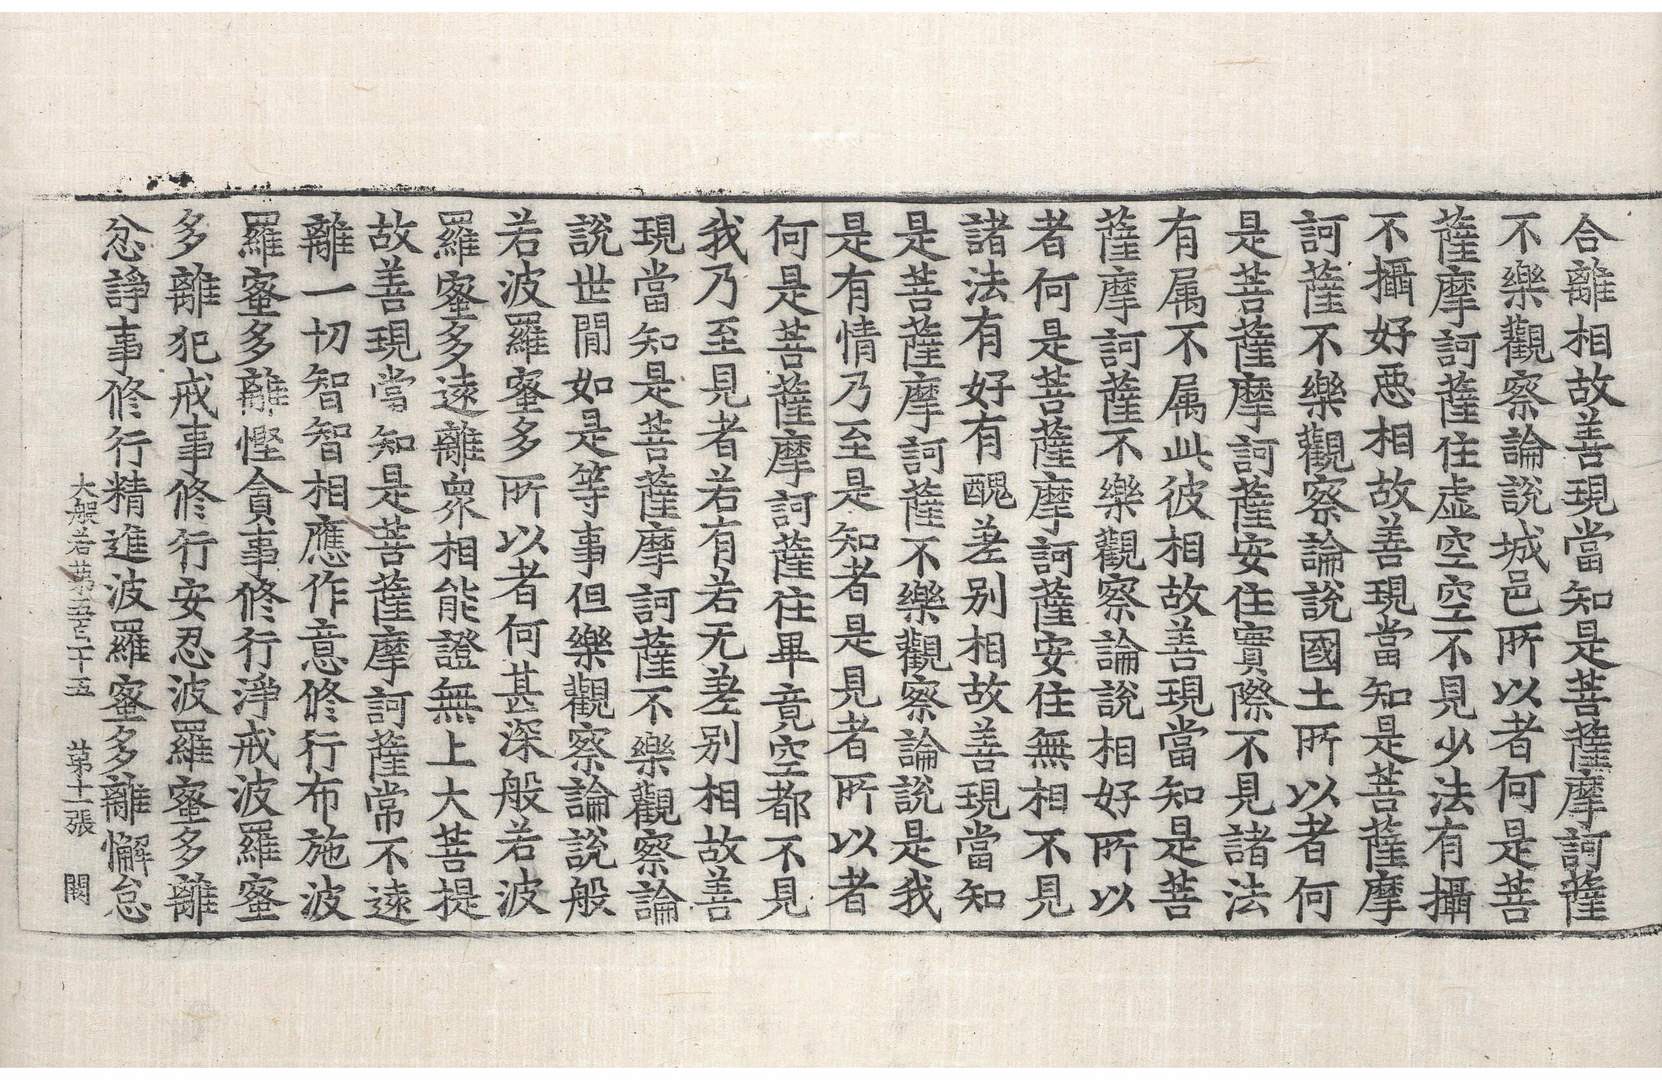 合離相故善現當知是菩薩摩訶薩
不樂觀察論說城邑所以者何是菩
薩摩訶薩住虛空空不見少法有攝
不攝好惡相故善現當知是菩薩摩
訶薩不樂觀察論說國土所以者何
是菩薩摩訶薩安住實際不見諸法
有属不属此彼相故善現當知是菩
薩摩訶薩不樂觀察論說相好所以
者何是菩薩摩訶薩安住無相不見
諸法有好有醜差別相故善現當知
是菩薩摩訶薩不樂觀察論說是我
是有情乃至是知者是見者所以者
何是菩薩摩訶薩住畢竟空都不見
我乃至見者若有若无差別相故善
現當知是菩薩摩訶薩不樂觀察論
說世間如是等事但樂觀察論說般
若波羅蜜多所以者何甚深般若波
羅蜜多遠離衆相能證無上大菩提
故善現當知是菩薩摩訶薩常不遠
離一切智智相應作意修行布施波
羅蜜多離慳貪事修行淨戒波羅蜜
多離犯戒事修行安忍波羅蜜多離
忿諍事修行精進波羅蜜多離懈怠
大般若第五百二十五 第十一張 闕